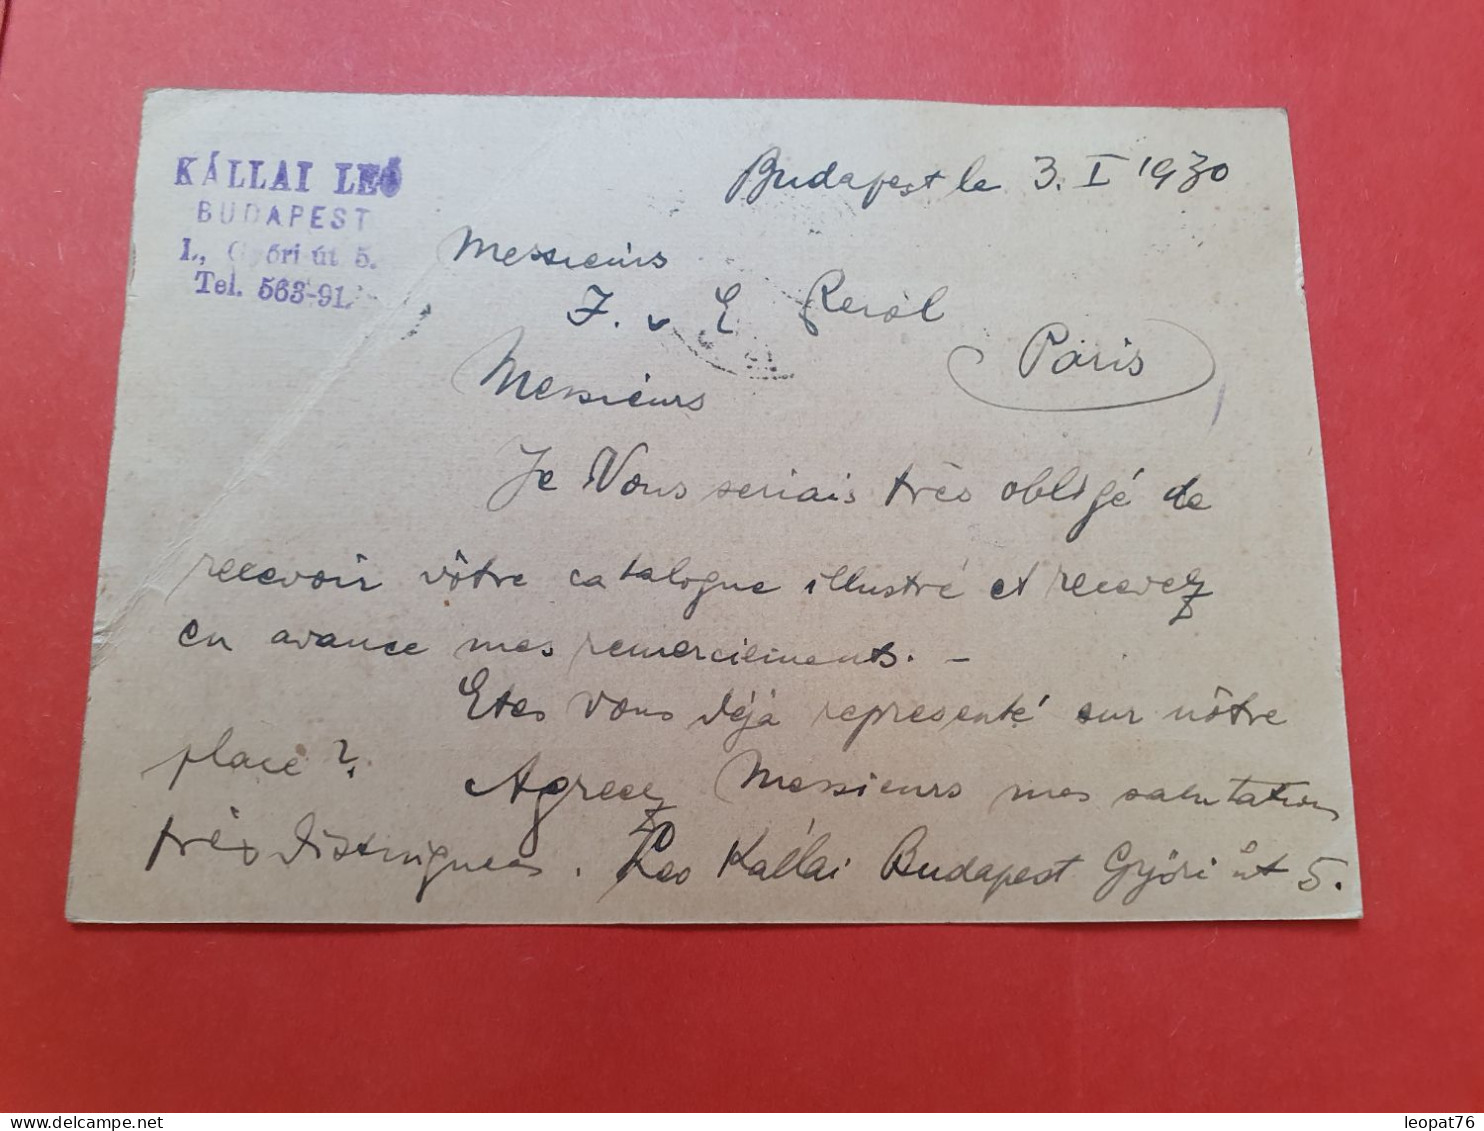 KÁLLAI LEÓ
BUDAPEST
I., Győri út 5.
Tel. 563-91.
Budapest le 3. I 1930
Messieurs
J. E
Paris
Messieurs
Je Vous serais très obligé de
recevoir vôtre catalogue illustré et recevez
en avance mes remerciements. –
Etes vous déjà representé sur nôtre
place?
Agreez Messieurs mes salutations
très distinguées. Leo Kállai Budapest Györi út 5.
leopat76